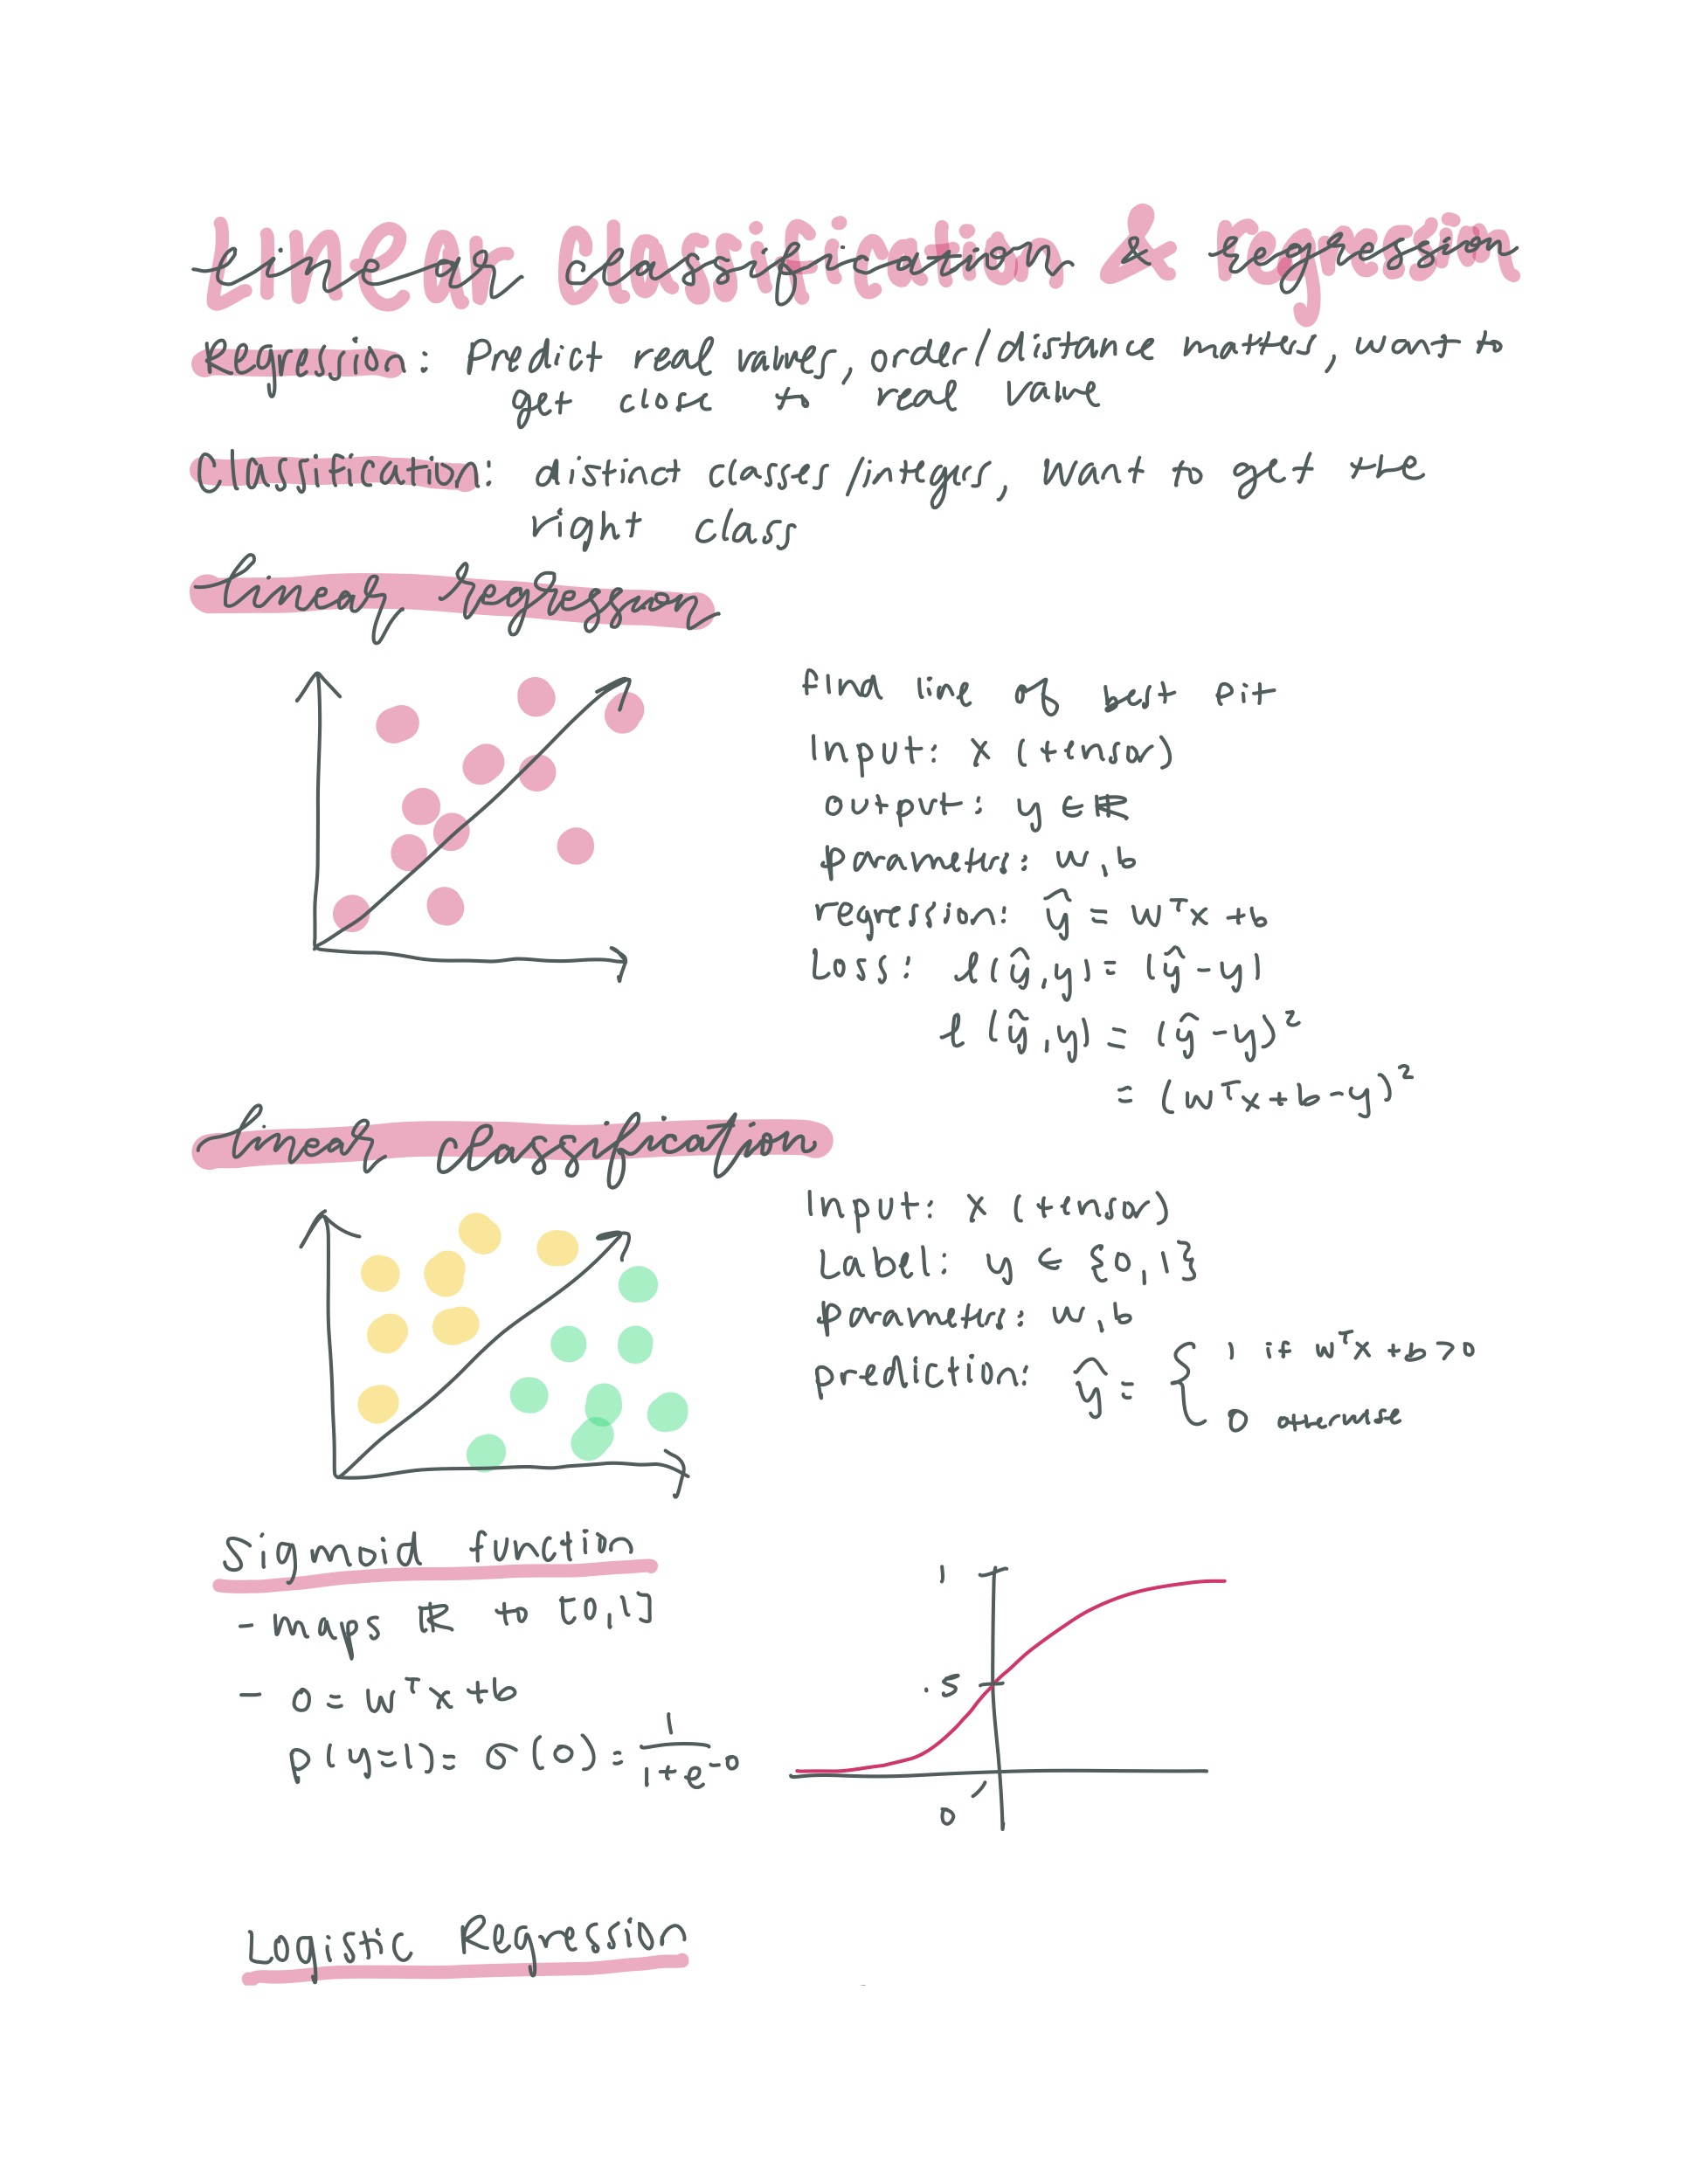 Linear Classification & regression
Regression: Predict real values, order/distance matters, want to
get close to real value
Classification: distinct classes/integers, want to get the
right class
linear regression
find line of best fit
Input: x (tensor)
output: y ∈ ℝ
parameters: w, b
regression: ŷ = wᵀx + b
Loss: l(ŷ, y) = |ŷ - y|
l(ŷ, y) = (ŷ - y)²
= (wᵀx + b - y)²
linear classification
Input: x (tensor)
Label: y ∈ {0, 1}
parameters: w, b
prediction: ŷ = { 1 if wᵀx + b > 0
0 otherwise
Sigmoid function
- maps ℝ to [0,1]
- o = wᵀx + b
p(y=1) = σ(o) = 1/(1 + e⁻ᵒ)
1
.5
0
Logistic Regression